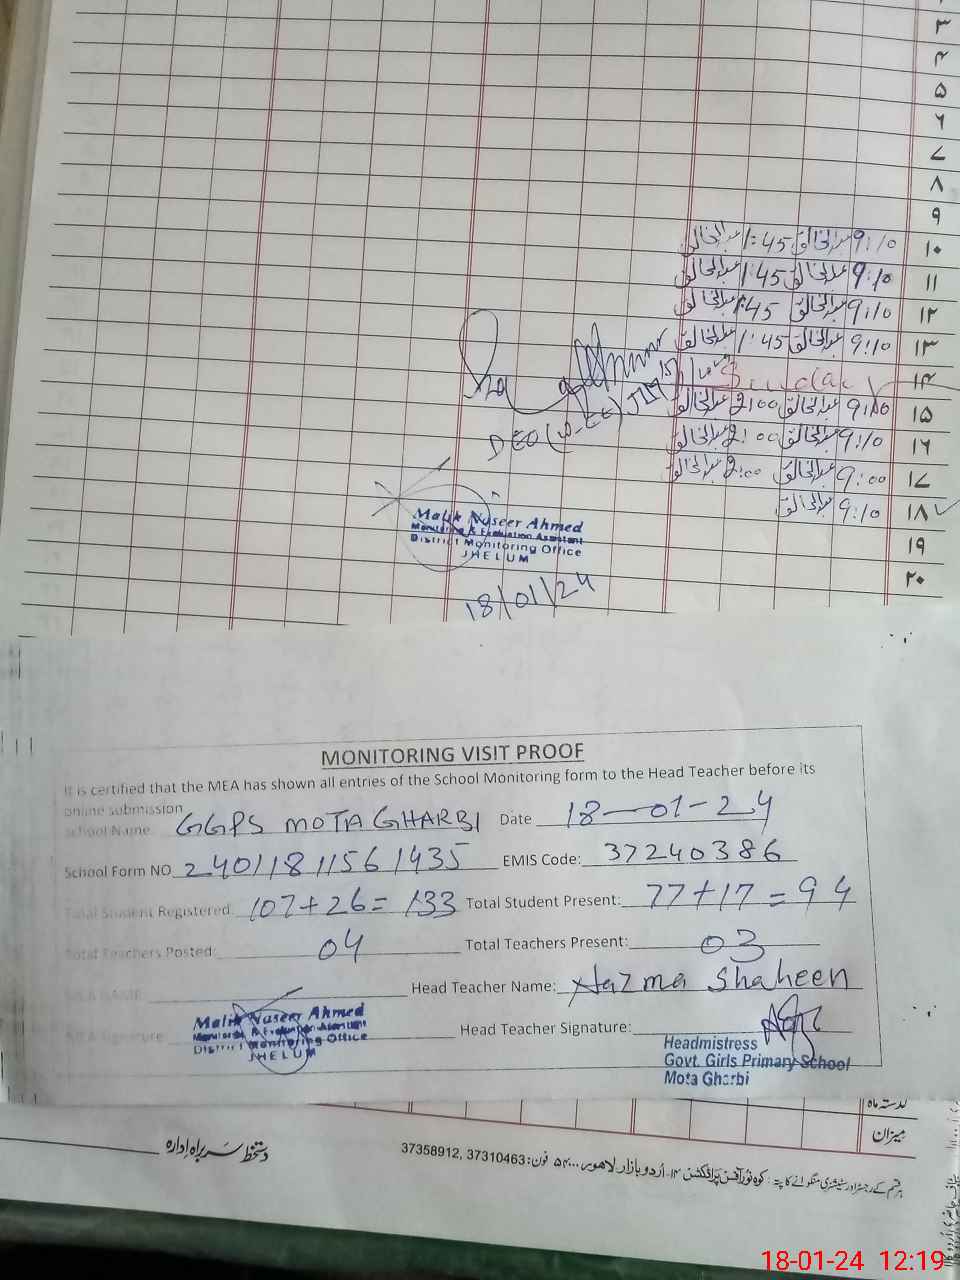 ۳
۴
۵
۶
۷
۸
۹
۱۰ 9:10 عبدالخالق 1:45 عبدالخالق
۱۱ 9:10 عبدالخالق 1:45 عبدالخالق
۱۲ 9:10 عبدالخالق 1:45 عبدالخالق
۱۳ 9:10 عبدالخالق 1:45 عبدالخالق
۱۴ Sunday
۱۵ 9:10 عبدالخالق 2:00 عبدالخالق
۱۶ 9:10 عبدالخالق 2:00 عبدالخالق
۱۷ 9:00 عبدالخالق 2:00 عبدالخالق
۱۸ 9:10 عبدالخالق
۱۹
۲۰
DEO (W-EE) JLM
Malik Naseer Ahmed
Monitoring & Evaluation Assistant
District Monitoring Office
JHELUM
18/01/24
MONITORING VISIT PROOF
It is certified that the MEA has shown all entries of the School Monitoring form to the Head Teacher before its
online submission
School Name GGPS MOTA GHARBI Date 18-01-24
School Form NO 2401181156 1435 EMIS Code: 37240386
Total Student Registered: 107+26=133 Total Student Present: 77+17=94
Total Teachers Posted: 04 Total Teachers Present: 03
MEA NAME: Head Teacher Name: Nazma Shaheen
MEA Signature: Head Teacher Signature:
Malik Naseer Ahmed
Monitoring & Evaluation Assistant
District Monitoring Office
JHELUM
Headmistress
Govt. Girls Primary School
Mota Gharbi
گذشتہ ماہ
میزان
دستخط سربراہ ادارہ
ہر قسم کے رجسٹر اور سٹیشنری منگوانے کا پتہ: کوہ نور آفس پراڈکشن ۱۴۔اُردو بازار لاہور فون: 37310463, 37358912
18-01-24 12:19